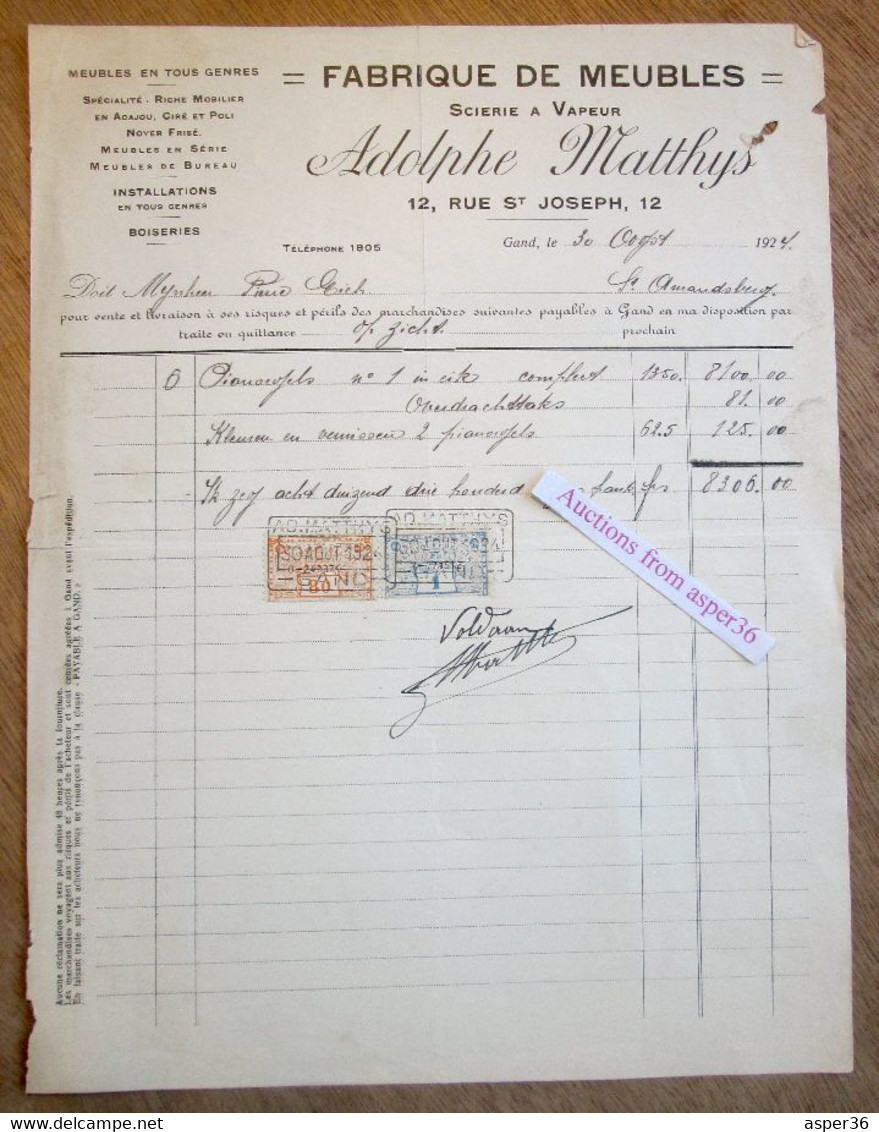 MEUBLES EN TOUS GENRES
SPÉCIALITÉ - RICHE MOBILIER
EN ACAJOU, CIRÉ ET POLI
NOYER FRISÉ.
MEUBLES EN SÉRIE
MEUBLES DE BUREAU
INSTALLATIONS
EN TOUS GENRES
BOISERIES
= FABRIQUE DE MEUBLES =
SCIERIE A VAPEUR
Adolphe Matthys
12, RUE ST JOSEPH, 12
TÉLÉPHONE 1805
Gand, le 30 Oogst 1924.
Doit Mynheer St Amandsberg.
pour vente et livraison à ses risques et périls des marchandises suivantes payables à Gand en ma disposition par
traite ou quittance op zicht. prochain
6 Pianorofels n° 1 in eik compleet 1350. 8100.00
Overdrachttaks 81.00
Kleuren en vernissen 2 pianorofels 62.5 125.00
Ik zeg acht duizend drie honderd frs 8306.00
AD. MATTHYS
30 AOUT 1924
GAND
80
AD. MATTHYS
30 AOUT 1924
GAND
1
Voldaan
Auctions from asper36
Aucune réclamation ne sera plus admise 48 heures après la fourniture.
Les marchandises voyagent aux risques et périls de l'acheteur et sont censées agréées à Gand avant l'expédition.
En faisant traite sur les acheteurs nous ne renonçons pas à la clause « PAYABLE A GAND. »
delcampe.net
asper36